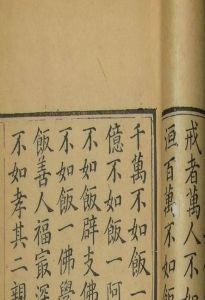 戒者萬人不如
洹百萬不如飯
千萬不如飯一
億不如飯一阿
不如飯辟支佛
不如飯一佛學
飯善人福寂深
不如孝其二親